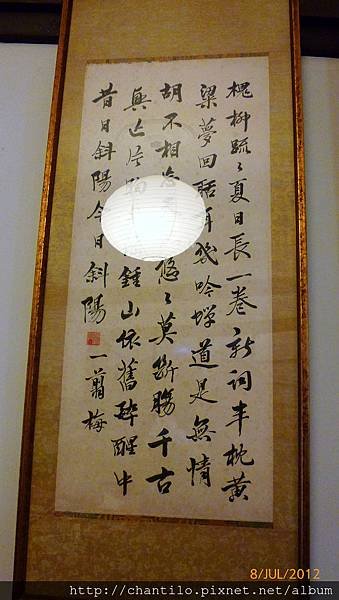 槐柳疏ゝ夏日長一卷新詞半枕黃
粱夢回聒耳幾吟蟬道是無情
胡不相忘悠ゝ莫斷腸千古
興亡片鍾山依舊醉醒中
昔日斜陽今日斜陽 一翦梅
8/JUL/2012
http://chantilo.pixnet.net/album